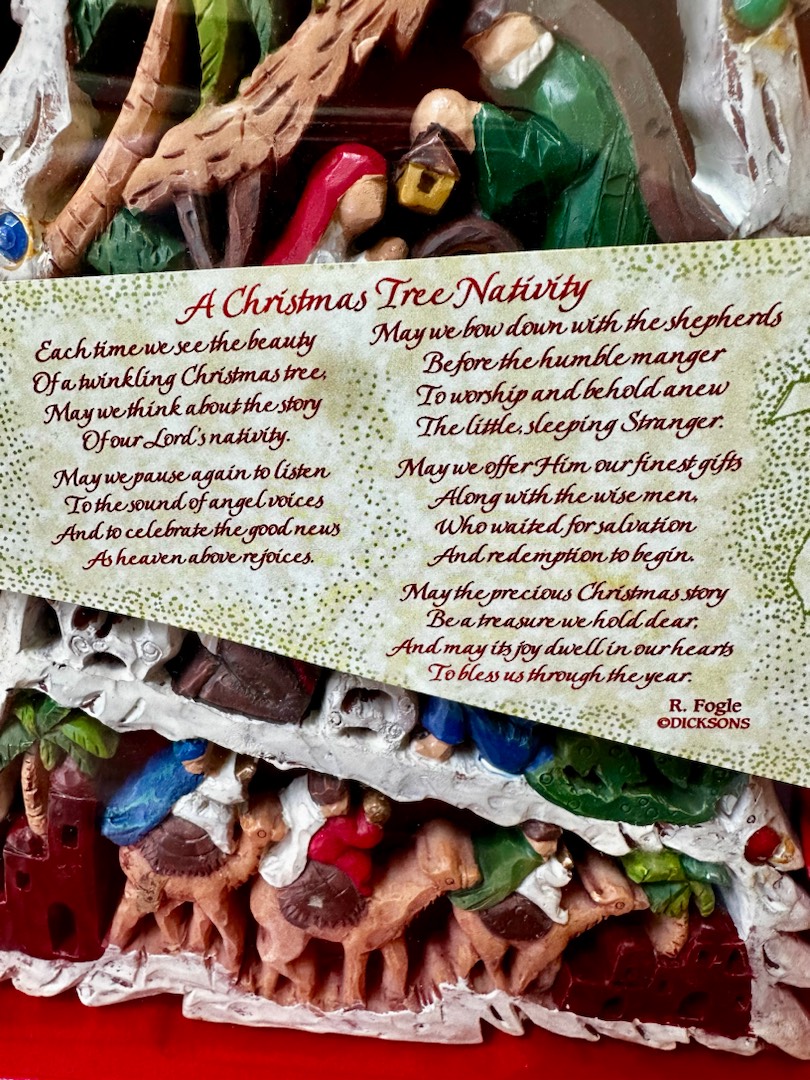 A Christmas Tree Nativity
Each time we see the beauty
Of a twinkling Christmas tree,
May we think about the story
Of our Lord's nativity.
May we pause again to listen
To the sound of angel voices
And to celebrate the good news
As heaven above rejoices.
May we bow down with the shepherds
Before the humble manger
To worship and behold anew
The little, sleeping Stranger.
May we offer Him our finest gifts
Along with the wise men,
Who waited for salvation
And redemption to begin.
May the precious Christmas story
Be a treasure we hold dear,
And may its joy dwell in our hearts
To bless us through the year.
R. Fogle
©DICKSONS